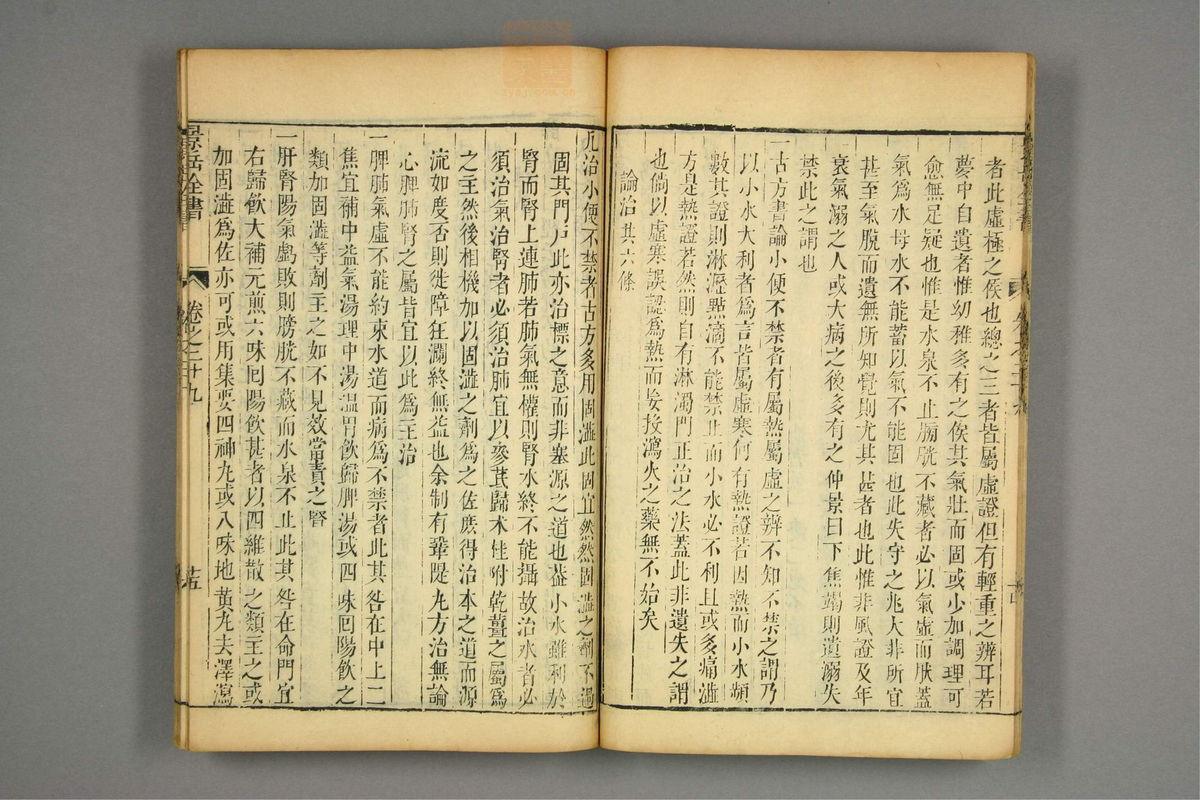 者此虛極之候也總之三者皆屬虛證但有輕重之辨耳若
夢中自遺者惟幼稚多有之俟其氣壯而固或少加調理可
愈無足疑也惟是水泉不止膀胱不藏者必以氣虛而然蓋
氣爲水母水不能蓄以氣不能固也此失守之兆大非所宜
甚至氣脫而遺無所知覺則尤其甚者也此惟非風證及年
衰氣溺之人或大病之後多有之仲景曰下焦竭則遺溺失
禁此之謂也
一古方書論小便不禁者有屬熱屬虛之辨不知不禁之謂乃
以小水大利者爲言皆屬虛寒何有熱證若因熱而小水頻
數其證則淋瀝點滴不能禁止而小水必不利且或多痛澁
方是熱證若然則自有淋濁門正治之法蓋此非遺失之謂
也倘以虛寒誤認爲熱而妄投瀉火之藥無不殆矣
論治共六條
凡治小便不禁者古方多用固澁此固宜然然固澁之劑不過
固其門戶此亦治標之意而非塞源之道也蓋小水雖利於
腎而腎上連肺若肺氣無權則腎水終不能攝故治水者必
須治氣治腎者必須治肺宜以參芪歸术桂附乾薑之屬爲
之主然後相機加以固澁之劑爲之佐庶得治本之道而源
流如度否則徙障狂瀾終無益也余制有鞏隄丸方治無論
心脾肺腎之屬皆宜以此爲主治
一脾肺氣虛不能約束水道而病爲不禁者此其咎在中上二
焦宜補中益氣湯理中湯溫胃飲歸脾湯或四味囘陽飲之
類加固澁等劑主之如不見效當責之腎
一肝腎陽氣虧敗則膀胱不藏而水泉不止此其咎在命門宜
右歸飲大補元煎六味囘陽飲甚者以四維散之類主之或
加固澁爲佐亦可或用集要四神丸或八味地黃丸去澤瀉
景岳全書
卷之二十九